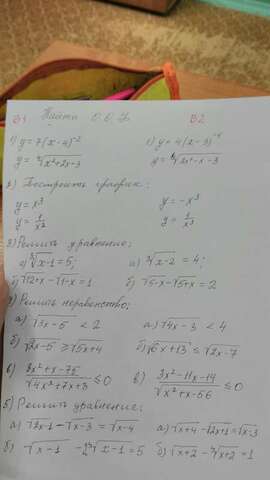 В1 Найти О.О.У В2
1) y = 7(x-4)⁻² 1) y = 4(x-3)⁻⁴
y = √x²+2x-3 y = √2x²-x-3
2) Построить график:
y = x³ y = -x³
y = 1/x² y = 1/x³
3) Решить уравнение:
а) ∛x-1 = 5; а) ∛x-2 = 4;
б) √12+x - √1-x = 1 б) √5-x - √5+x = 2
4) Решить неравенство:
а) √3x-5 < 2 а) √4x-3 < 4
б) √2x-5 ≥ √5x+4 б) √6x+13 ≤ √2x-7
в) 8x²+x-75/√4x²+7x+3 ≤ 0 в) 3x²-11x-14/√x²+x-56 ≤ 0
5) Решить уравнение:
а) √2x-1 - √x-3 = √x-4 а) √x+4 - √2x+1 = √x-3
б) √x-1 = 5 б) √x+2 - √x+2 = 1